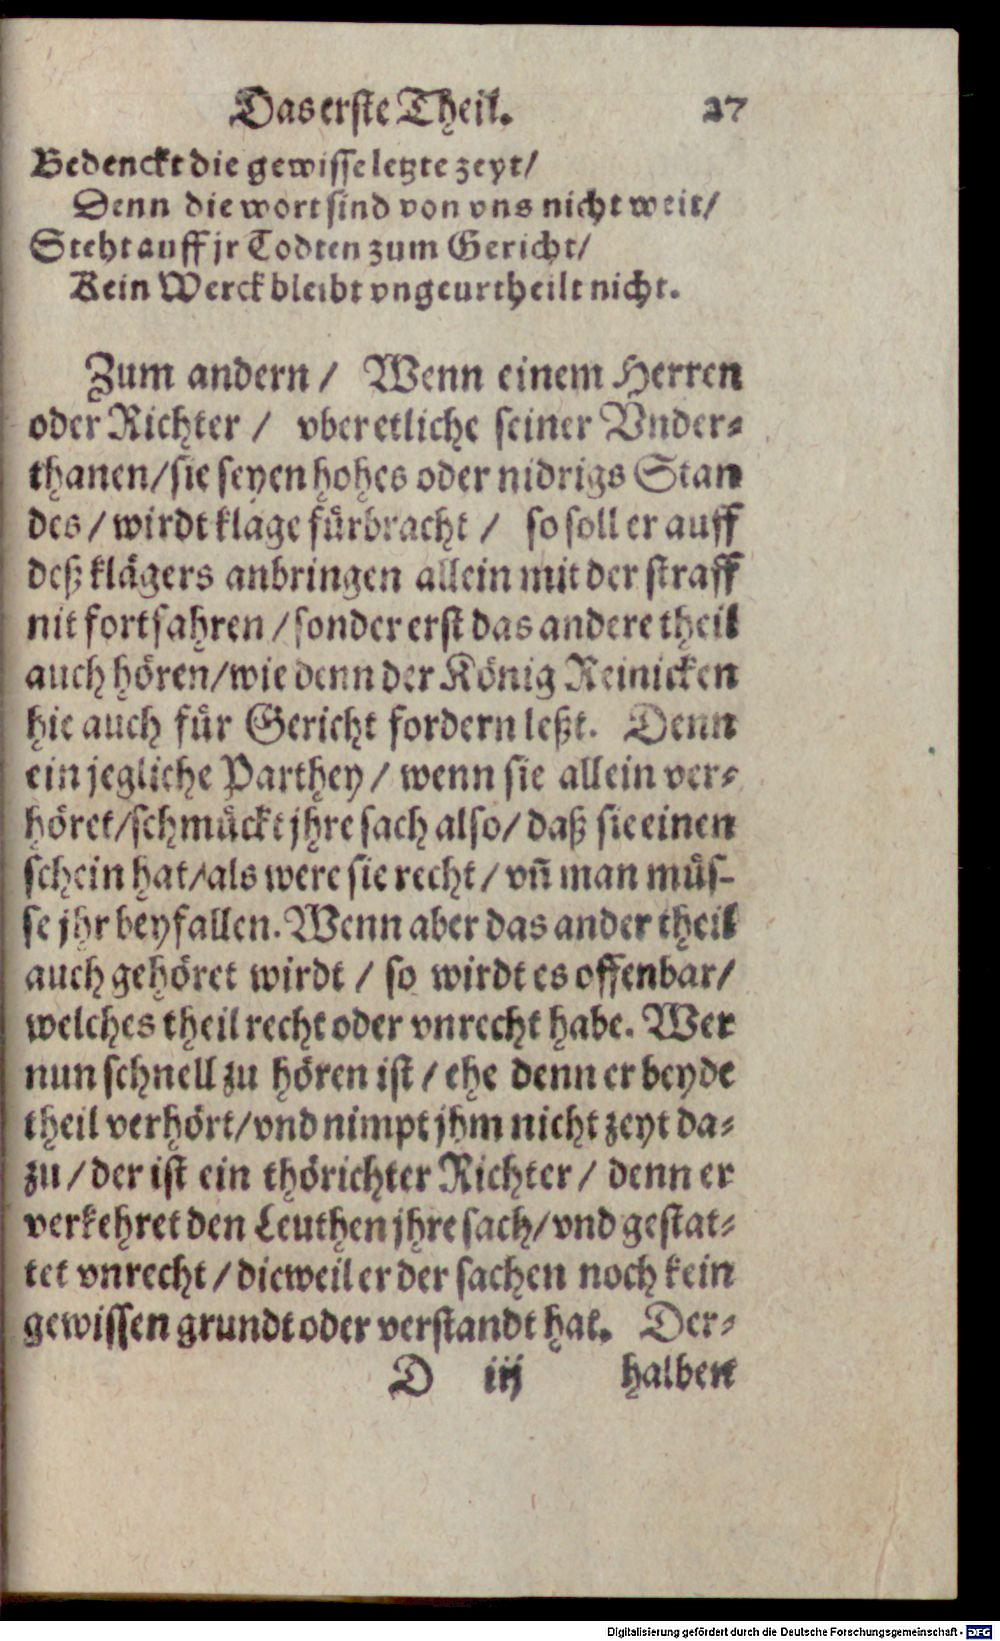 Das erste Theil. 27
Bedenckt die gewisse letzte zeyt/
Denn die wort sind von vns nicht weit/
Steht auff jr Todten zum Gericht/
Kein Werck bleibt vngeurtheilt nicht.
Zum andern / Wenn einem Herren
oder Richter / vber etliche seiner Vnder-
thanen/sie seyen hohes oder nidrigs Stan
des / wirdt klage fürbracht / so soll er auff
deß klägers anbringen allein mit der straff
nit fortfahren / sonder erst das andere theil
auch hören/wie denn der König Reinicken
hie auch für Gericht fordern leßt. Denn
ein jegliche Parthey / wenn sie allein ver-
höret/schmückt jhre sach also/ daß sie einen
schein hat/als were sie recht / vñ man müs-
se jhr beyfallen. Wenn aber das ander theil
auch gehöret wirdt / so wirdt es offenbar/
welches theil recht oder vnrecht habe. Wer
nun schnell zu hören ist / ehe denn er beyde
theil verhört/vnd nimpt jhm nicht zeyt da-
zu / der ist ein thörichter Richter / denn er
verkehret den Leuthen jhre sach/vnd gestat-
tet vnrecht / dieweil er der sachen noch kein
gewissen grundt oder verstandt hat. Der-
D iij halben
Digitalisierung gefördert durch die Deutsche Forschungsgemeinschaft - DFG